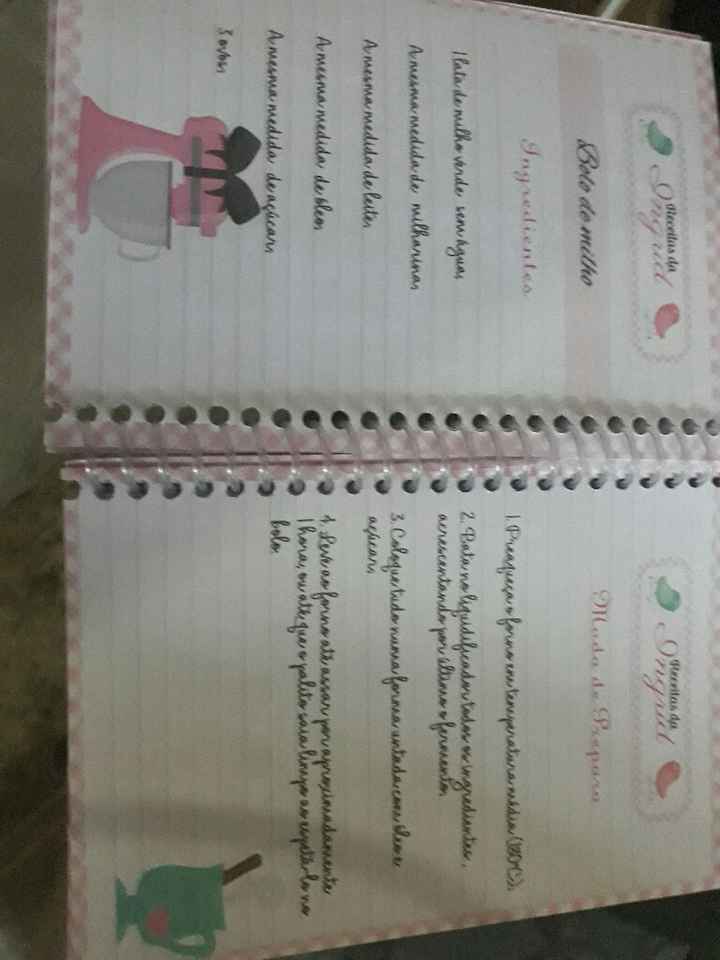 Receitas da
Ingrid
Bolo de milho
Ingredientes
1 lata de milho verde sem água
A mesma medida de milharina
A mesma medida de leite
A mesma medida de óleo
A mesma medida de açúcar
3 ovos
Receitas da
Ingrid
Modo de Preparo
1. Preaqueça o forno em temperatura média (180°C).
2. Bata no liquidificador todos os ingredientes,
acrescentando por último o fermento.
3. Coloque tudo numa forma untada com óleo e
açúcar.
4. Leve ao forno até assar por aproximadamente
1 hora, ou até que o palito saia limpo ao espetá-lo no
bolo.